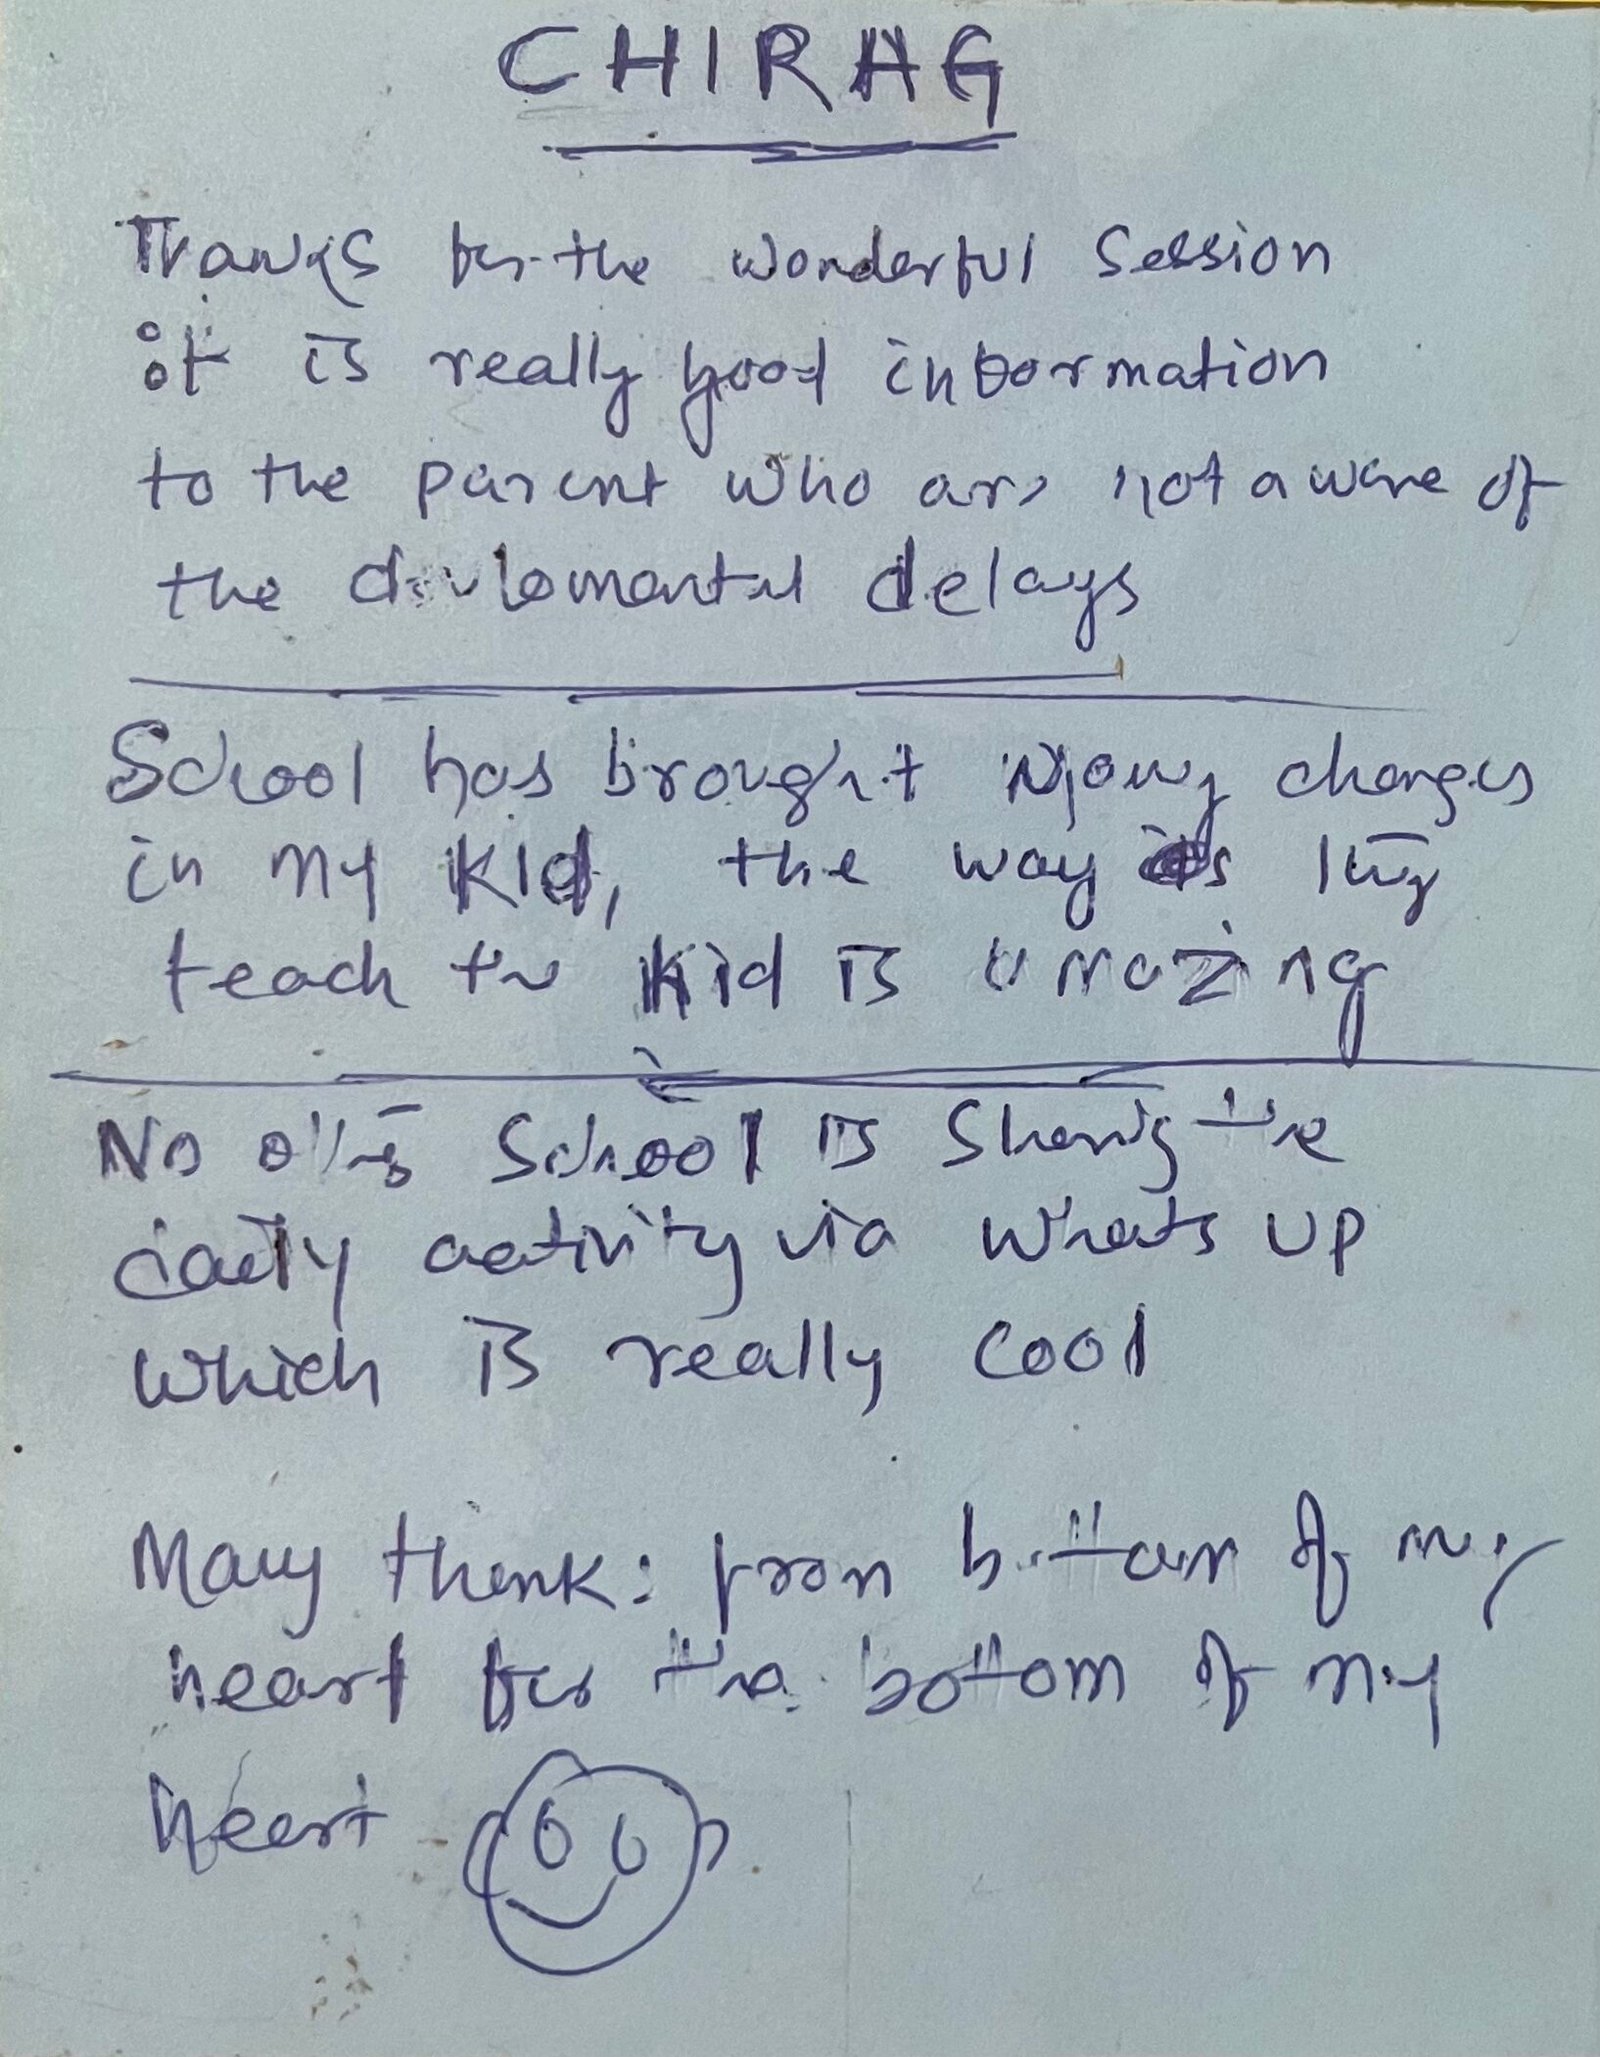 CHIRAG
Thanks for the wonderful Session
it is really good information
to the parent who are not aware of
the devlomental delays
School has brought many changes
in my kid, the way is they
teach the kid is amazing
No other School is Sharing the
daily activity via whats up
which is really cool
Many thank: from bottom of my
heart for the bottom of my
heart